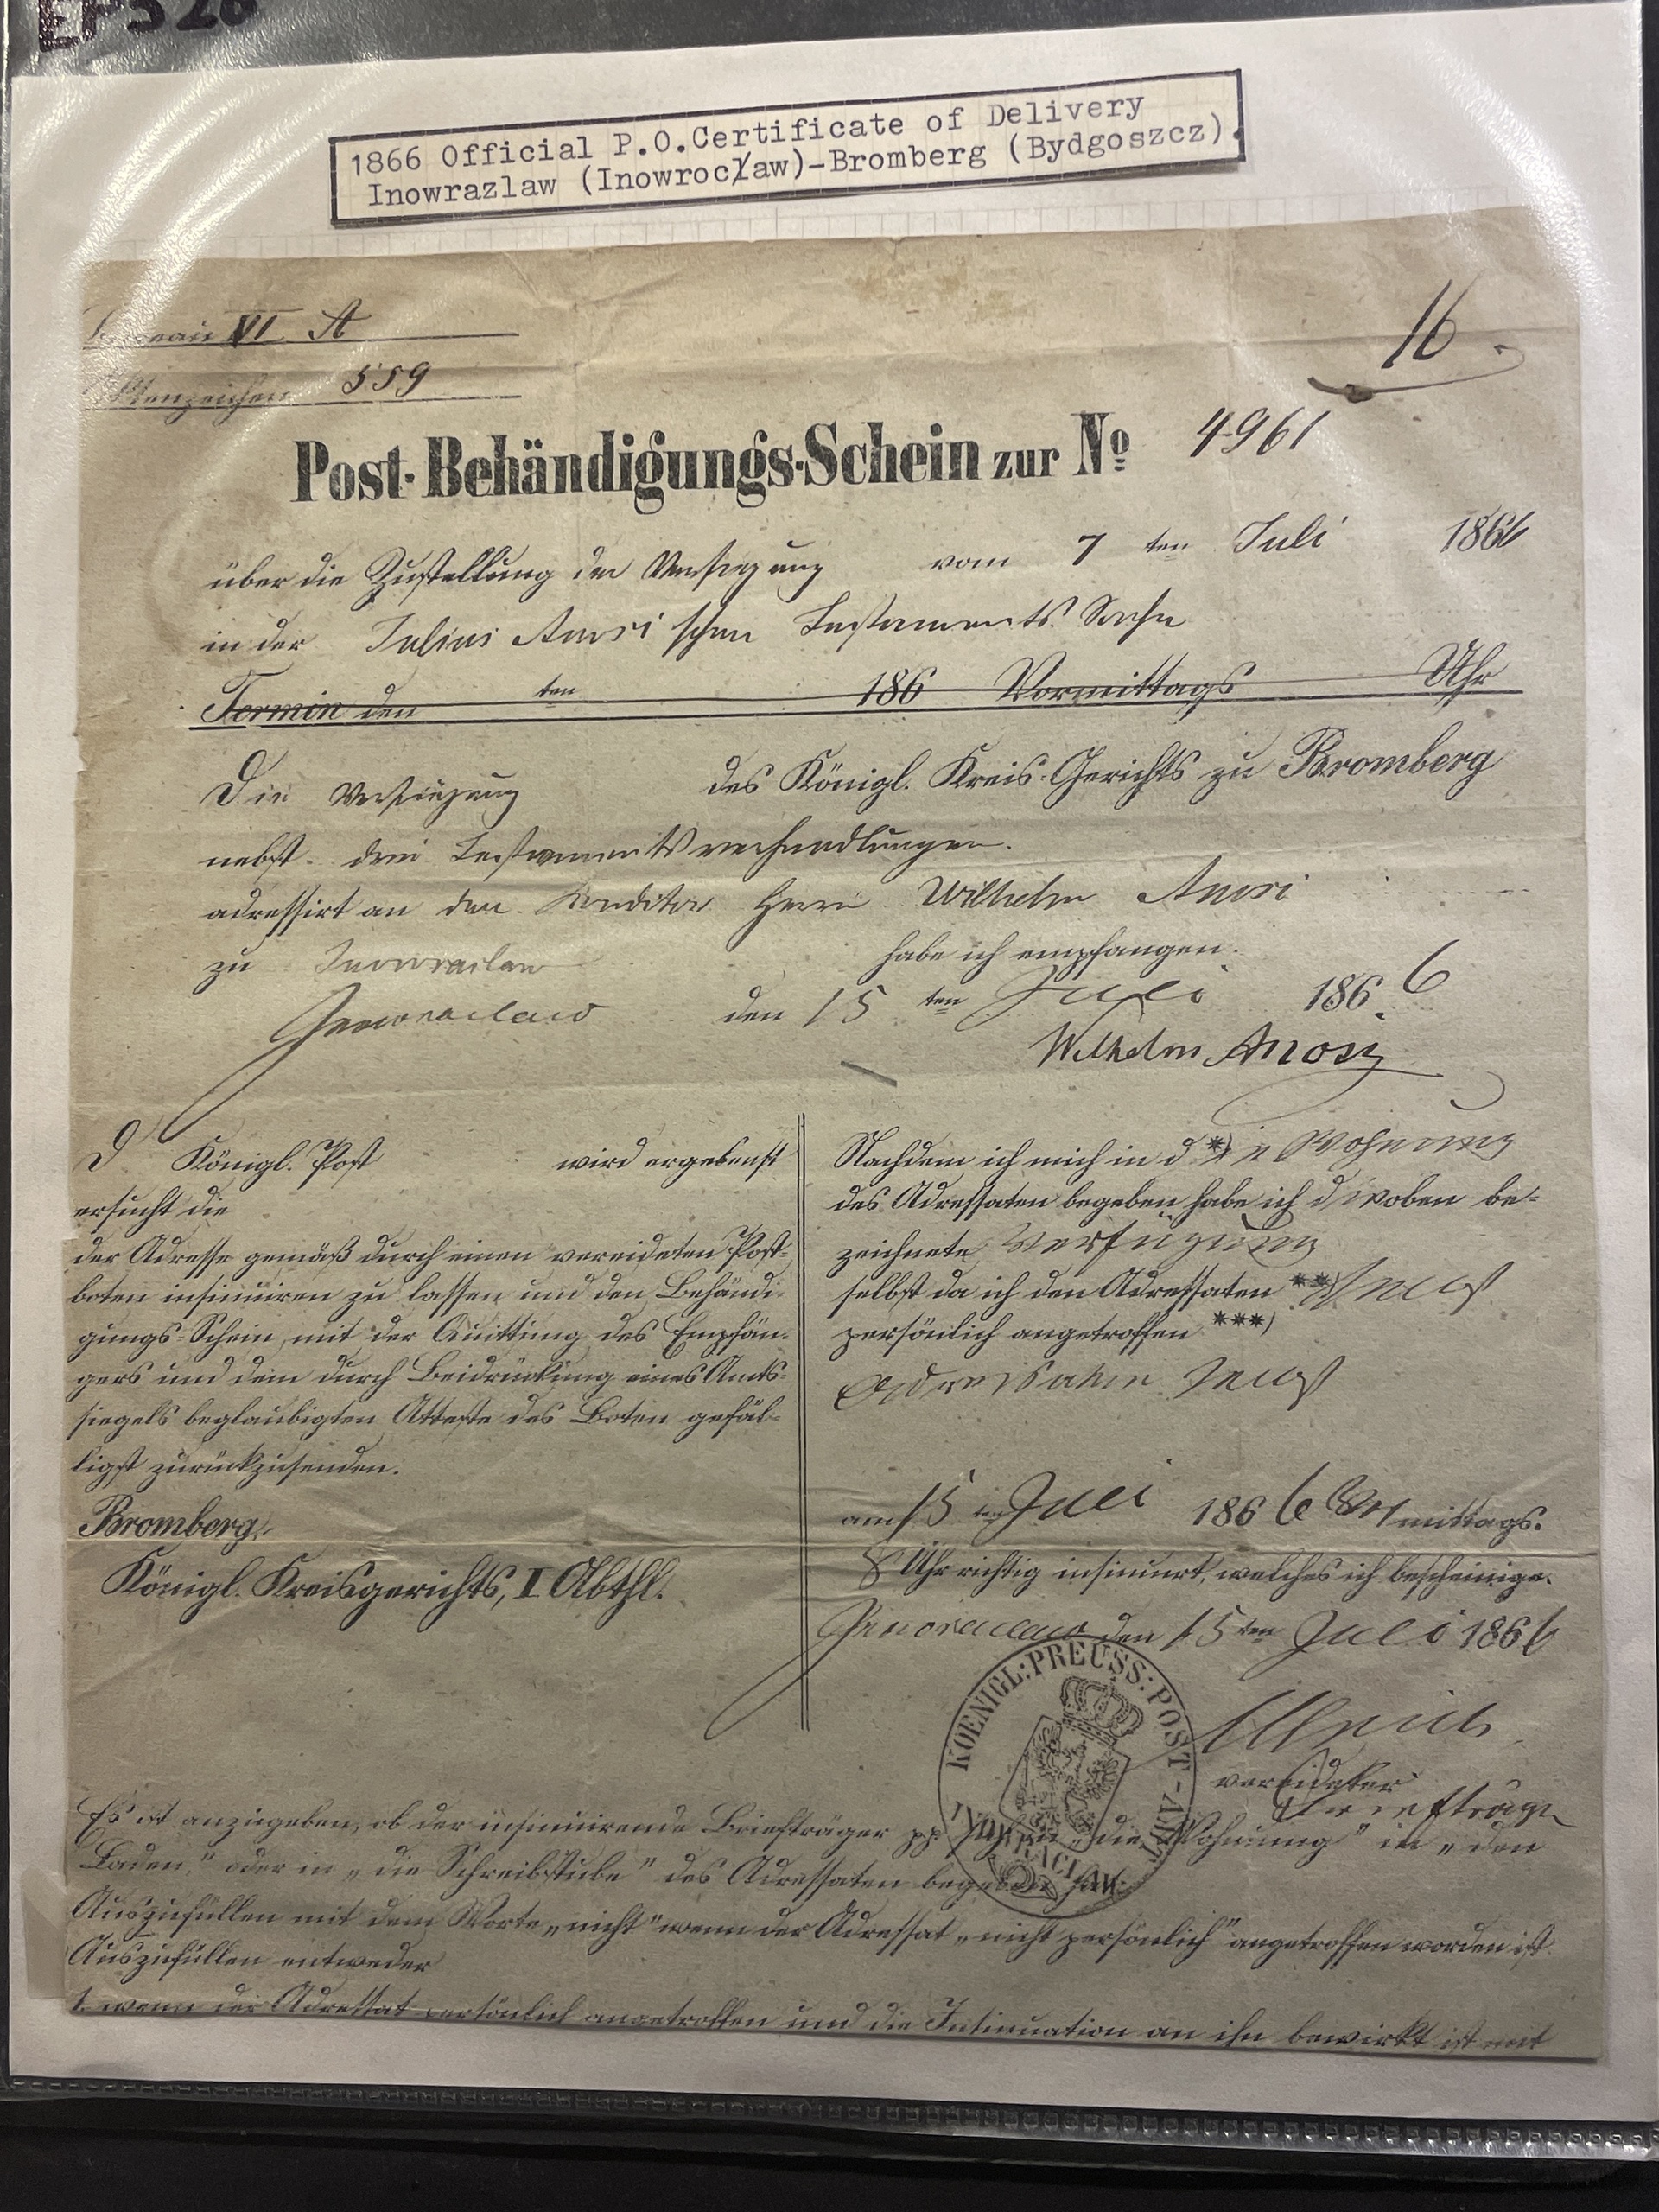 EPS 26
1866 Official P.O.Certificate of Delivery
Inowrazlaw (Inowrocław)-Bromberg (Bydgoszcz).
Bureau VI A
Aktenzeichen 559
16
Post-Behändigungs-Schein zur No 4961
über die Zustellung der Verfügung vom 7 ten Juli 1866
in der Julius schen Testaments Sache
Termin den ten 186 Vormittags Uhr
Die Verfügung des Königl. Kreis-Gerichts zu Bromberg
nebst drei Testamentsverhandlungen.
adressirt an den Conditor Herrn Wilhelm
zu Inowraclaw habe ich empfangen.
Inowraclaw den 15 ten Juli 186 6
Wilhelm
D Königl. Post wird ergebenst
ersucht die
der Adresse gemäß durch einen vereideten Post-
boten insinuiren zu lassen und den Behändi-
gungs-Schein, mit der Quittung des Empfän-
gers und dem durch Beidrückung eines Amts-
siegels beglaubigten Atteste des Boten gefäl-
ligst zurückzusenden.
Bromberg,
Königl. Kreisgerichts, I Abthl.
Nachdem ich mich in d *) ie Wohnung
des Adressaten begeben habe ich die oben be-
zeichnete Verfügung
selbst da ich den Adressaten **)
persönlich angetroffen ***)
Adressaten selbst
am 15 ten Juli 186 6 mittags.
8 Uhr richtig insinuirt, welches ich bescheinige.
Inowraclaw den 15 ten Juli 1866
vereideter
Briefträger
KOENIGL: PREUSS: POST-AMT
INOWRACLAW
Es ist anzugeben, ob der insinuirende Briefträger pp sich in „die Wohnung" in „den
Laden," oder in „die Schreibstube" des Adressaten begeben hat.
Auszufüllen mit dem Worte „nicht" wenn der Adressat „nicht persönlich" angetroffen worden ist.
Auszufüllen entweder
1. wenn der Adressat persönlich angetroffen und die Insinuation an ihn bewirkt ist mit